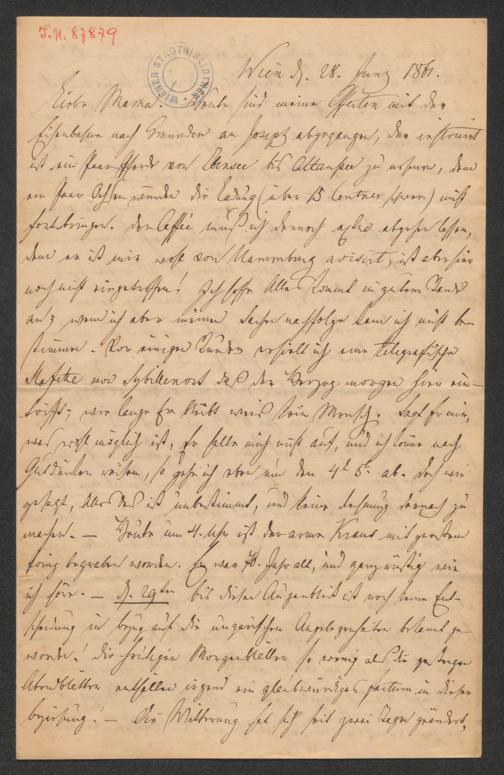 I.N. 87879
WIENER STADTBIBLIOTHEK
Wien d. 28. Juny 1861.
Liebe Mama. Heute sind meine Effecten mit der
Eisenbahn nach Gmunden an Joseph abgegangen, der instruirt
ist ein Paar Pferde von Ebensee bis Altaussee zu nehmen, denn
ein Paar Ochsen würde die Ladung (über 15 Centner schwer) nicht
fortbringen. Den Caffée muß ich dennoch extra abgehen lassen,
denn er ist mir wohl von Hamburg avisirt, ist aber hier
noch nicht eingetroffen! Ich hoffe Alles kommt in gutem Stande
an; wann ich aber meinen Sachen nachfolge kann ich nicht be-
stimmen. Vor einigen Stunden erhielt ich eine telegrafische
Stafette von Sybillenort daß der Herzog morgen hier ein-
trifft; wie lange Er bleibt weis kein Mensch. Sagt Er mir,
was wohl möglich ist, Er halte mich nicht auf, und ich könne nach
Gutdünken reisen, so gehe ich eben um den 4t 5t ab. Doch wie
gesagt, Alles das ist unbestimmt, und keine Rechnung darnach zu
machen. — Heute um 4 Uhr ist der arme Kraus mit großem
begraben worden. Er war Jahr alt, und ganz rüstig wie
ich höre. — d. 29ten bis diesen Augenblick ist noch keine Ent-
scheidung in bezug auf die ungarischen Angelegenheiten bekannt ge-
worden! die heutigen Morgenblätter so wenig als die gestrigen
Abendblätter enthalten irgend ein glaubwürdiges factum in dieser
beziehung! — Die Witterung hat sich seit zwei Tagen geändert,